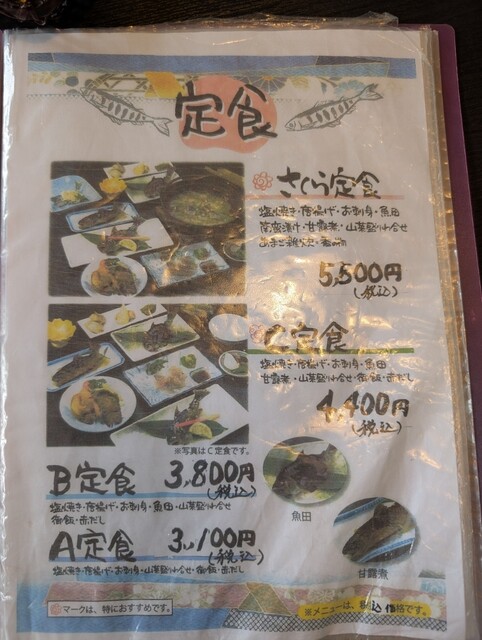 定食
さくら定食
塩焼き・唐揚げ・お刺身・魚田
南蛮漬け・甘露煮・山菜盛り合せ
あまご雑炊・香の物
5,500円
(税込)
C定食
塩焼き・唐揚げ・お刺身・魚田
甘露煮・山菜盛り合せ・御飯・赤だし
4,400円
(税込)
※写真はC定食です。
B定食 3,800円
(税込)
塩焼き・唐揚げ・お刺身・魚田・山菜盛り合せ
御飯・赤だし
A定食 3,100円
(税込)
塩焼き・唐揚げ・お刺身・山菜盛り合せ・御飯・赤だし
魚田
甘露煮
マークは、特におすすめです。
※メニューは、税込価格です。